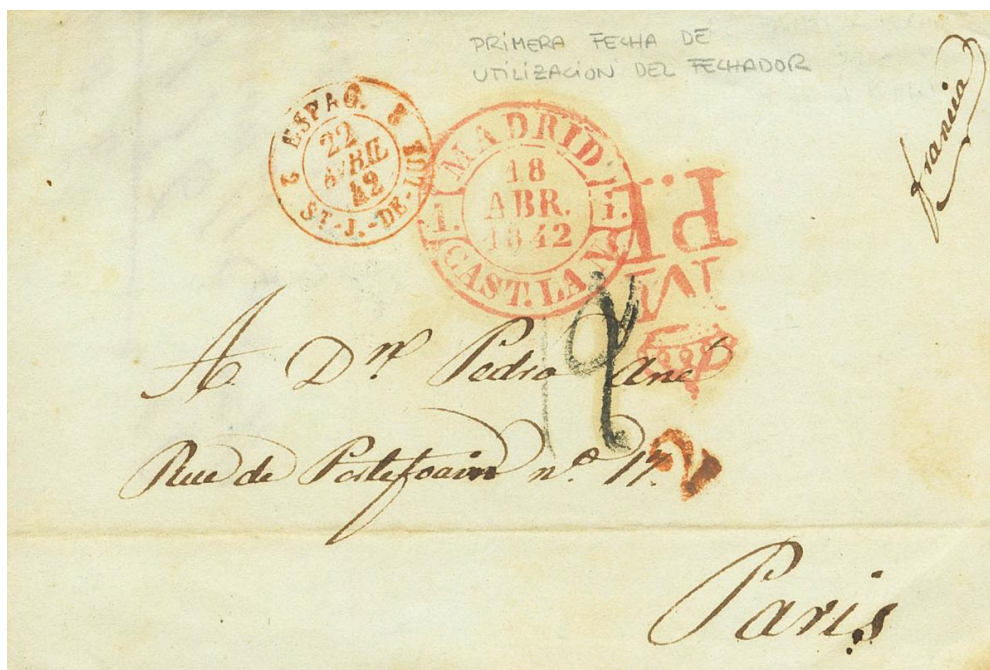 PRIMERA FECHA DE
UTILIZACION DEL FECHADOR
Francia
2 ESPAG. 2
22
AVRIL
42
ST-J.-DE-LUZ
MADRID
18
ABR.
1842
1. 1.
CAST. LA N.
P.P.
A Dn. Pedro Ané
Rue de Portefoain nº. 17.
Paris